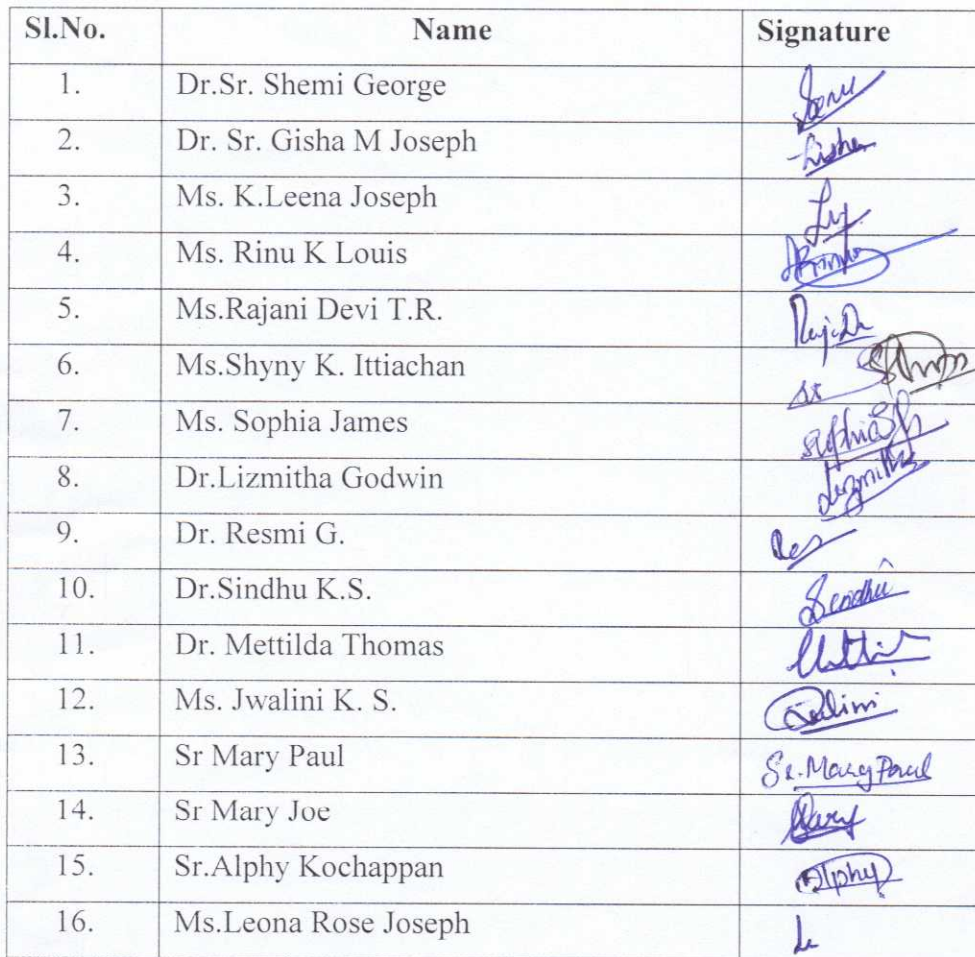 Sl.No. Name Signature
1. Dr.Sr. Shemi George
2. Dr. Sr. Gisha M Joseph
3. Ms. K.Leena Joseph
4. Ms. Rinu K Louis
5. Ms.Rajani Devi T.R.
6. Ms.Shyny K. Ittiachan
7. Ms. Sophia James Sophia
8. Dr.Lizmitha Godwin Lizmitha
9. Dr. Resmi G. Res
10. Dr.Sindhu K.S. Sindhu
11. Dr. Mettilda Thomas
12. Ms. Jwalini K. S.
13. Sr Mary Paul Sr. Mary Paul
14. Sr Mary Joe Mary
15. Sr.Alphy Kochappan Alphy
16. Ms.Leona Rose Joseph Le